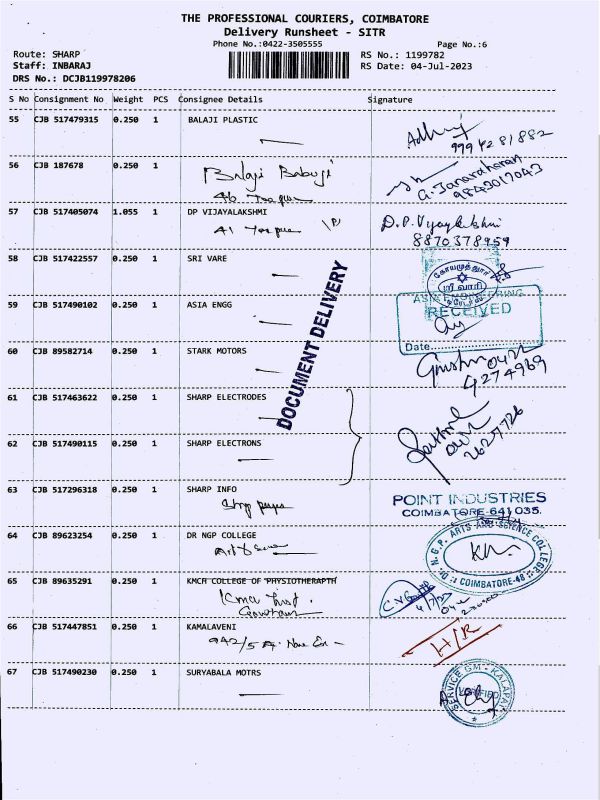 THE PROFESSIONAL COURIERS, COIMBATORE
Delivery Runsheet - SITR
Phone No.:0422-3505555 Page No.:6
Route: SHARP RS No.: 1199782
Staff: INBARAJ RS Date: 04-Jul-2023
DRS No.: DCJB119978206
S No Consignment No Weight PCS Consignee Details Signature
55 CJB 517479315 0.250 1 BALAJI PLASTIC
999 42 81882
56 CJB 187678 0.250 1
Balaji Babuji
46
9843017043
57 CJB 517405074 1.055 1 DP VIJAYALAKSHMI D.P. Vijayalakshmi
41
8870378959
58 CJB 517422557 0.250 1 SRI VARE
கோயமுத்தூர்
ஸ்ரீவாரி
59 CJB 517490102 0.250 1 ASIA ENGG
ASIA ENGINEERING
RECEIVED
Date
DOCUMENT DELIVERY
60 CJB 89582714 0.250 1 STARK MOTORS
4274969
61 CJB 517463622 0.250 1 SHARP ELECTRODES
2627726
62 CJB 517490115 0.250 1 SHARP ELECTRONS
63 CJB 517296318 0.250 1 SHARP INFO
POINT INDUSTRIES
COIMBATORE-641 035.
64 CJB 89623254 0.250 1 DR NGP COLLEGE
Dr. N.G.P. ARTS AND SCIENCE COLLEGE
COIMBATORE-48
65 CJB 89635291 0.250 1 KMCH COLLEGE OF PHYSIOTHERAPTH
4/7/23
66 CJB 517447851 0.250 1 KAMALAVENI
942/5A
H/R
67 CJB 517490230 0.250 1 SURYABALA MOTRS
SERVICE GM - KALAPATTI
VERIFIED